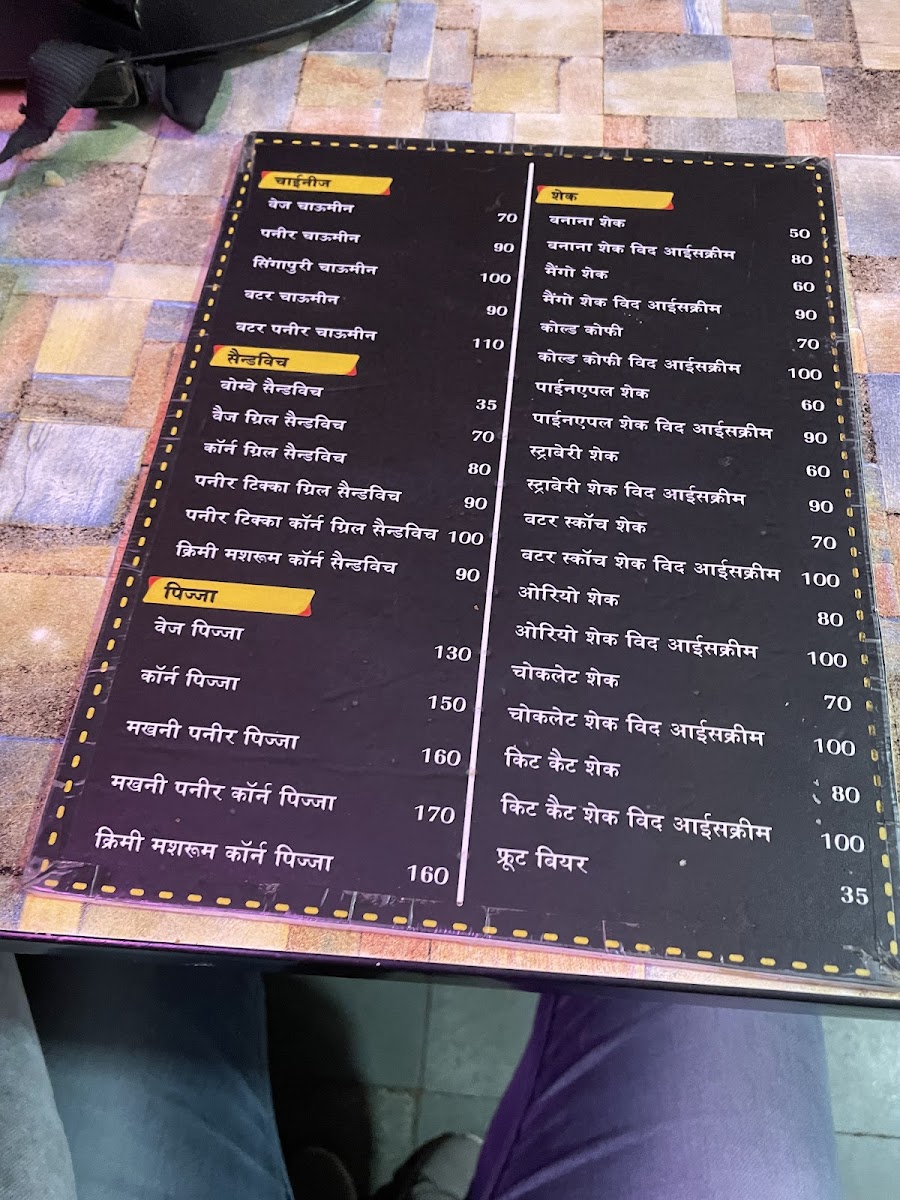 चाईनीज
वेज चाऊमीन 70
पनीर चाऊमीन 90
सिंगापुरी चाऊमीन 100
बटर चाऊमीन 90
बटर पनीर चाऊमीन 110
सैन्डविच
बोम्बे सैन्डविच 35
वैज ग्रिल सैन्डविच 70
कॉर्न ग्रिल सैन्डविच 80
पनीर टिक्का ग्रिल सैन्डविच 90
पनीर टिक्का कॉर्न ग्रिल सैन्डविच 100
क्रिमी मशरूम कॉर्न सैन्डविच 90
पिज्जा
वेज पिज्जा 130
कॉर्न पिज्जा 150
मखनी पनीर पिज्जा 160
मखनी पनीर कॉर्न पिज्जा 170
क्रिमी मशरूम कॉर्न पिज्जा 160
शेक
बनाना शेक 50
बनाना शेक विद आईसक्रीम 80
मैंगो शेक 60
मैंगो शेक विद आईसक्रीम 90
कोल्ड कोफी 70
कोल्ड कोफी विद आईसक्रीम 100
पाईनएपल शेक 60
पाईनएपल शेक विद आईसक्रीम 90
स्ट्राबेरी शेक 60
स्ट्राबेरी शेक विद आईसक्रीम 90
बटर स्कॉच शेक 70
बटर स्कॉच शेक विद आईसक्रीम 100
ओरियो शेक 80
ओरियो शेक विद आईसक्रीम 100
चोकलेट शेक 70
चोकलेट शेक विद आईसक्रीम 100
किट कैट शेक 80
किट कैट शेक विद आईसक्रीम 100
फ्रूट बियर 35